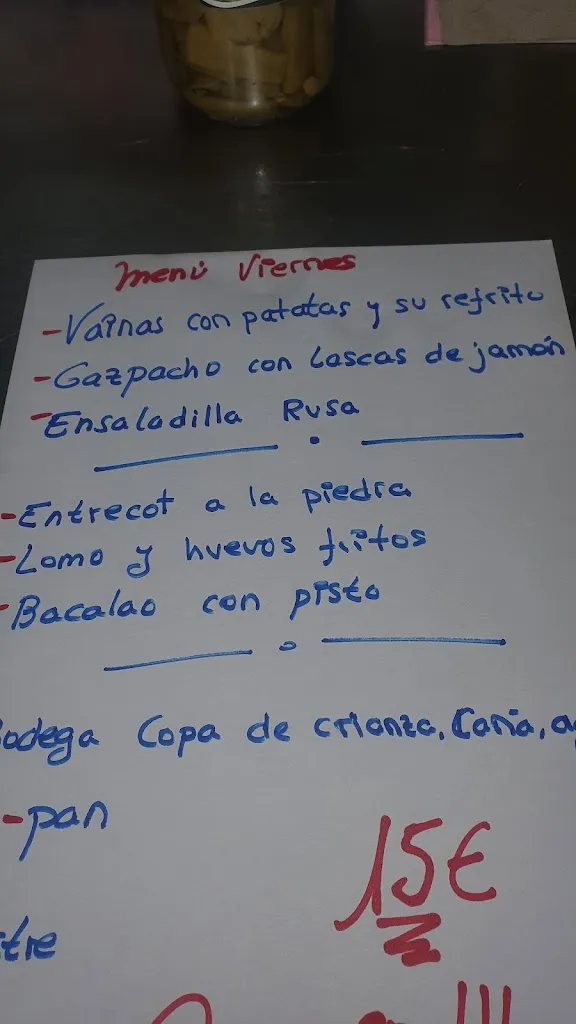 Menú Viernes
-Vainas con patatas y su refrito
-Gazpacho con Lascas de jamón
-Ensaladilla Rusa
-Entrecot a la piedra
-Lomo y huevos fritos
-Bacalao con pisto
Bodega Copa de crianza, Caña, ag
-pan
15€
tre
!!!